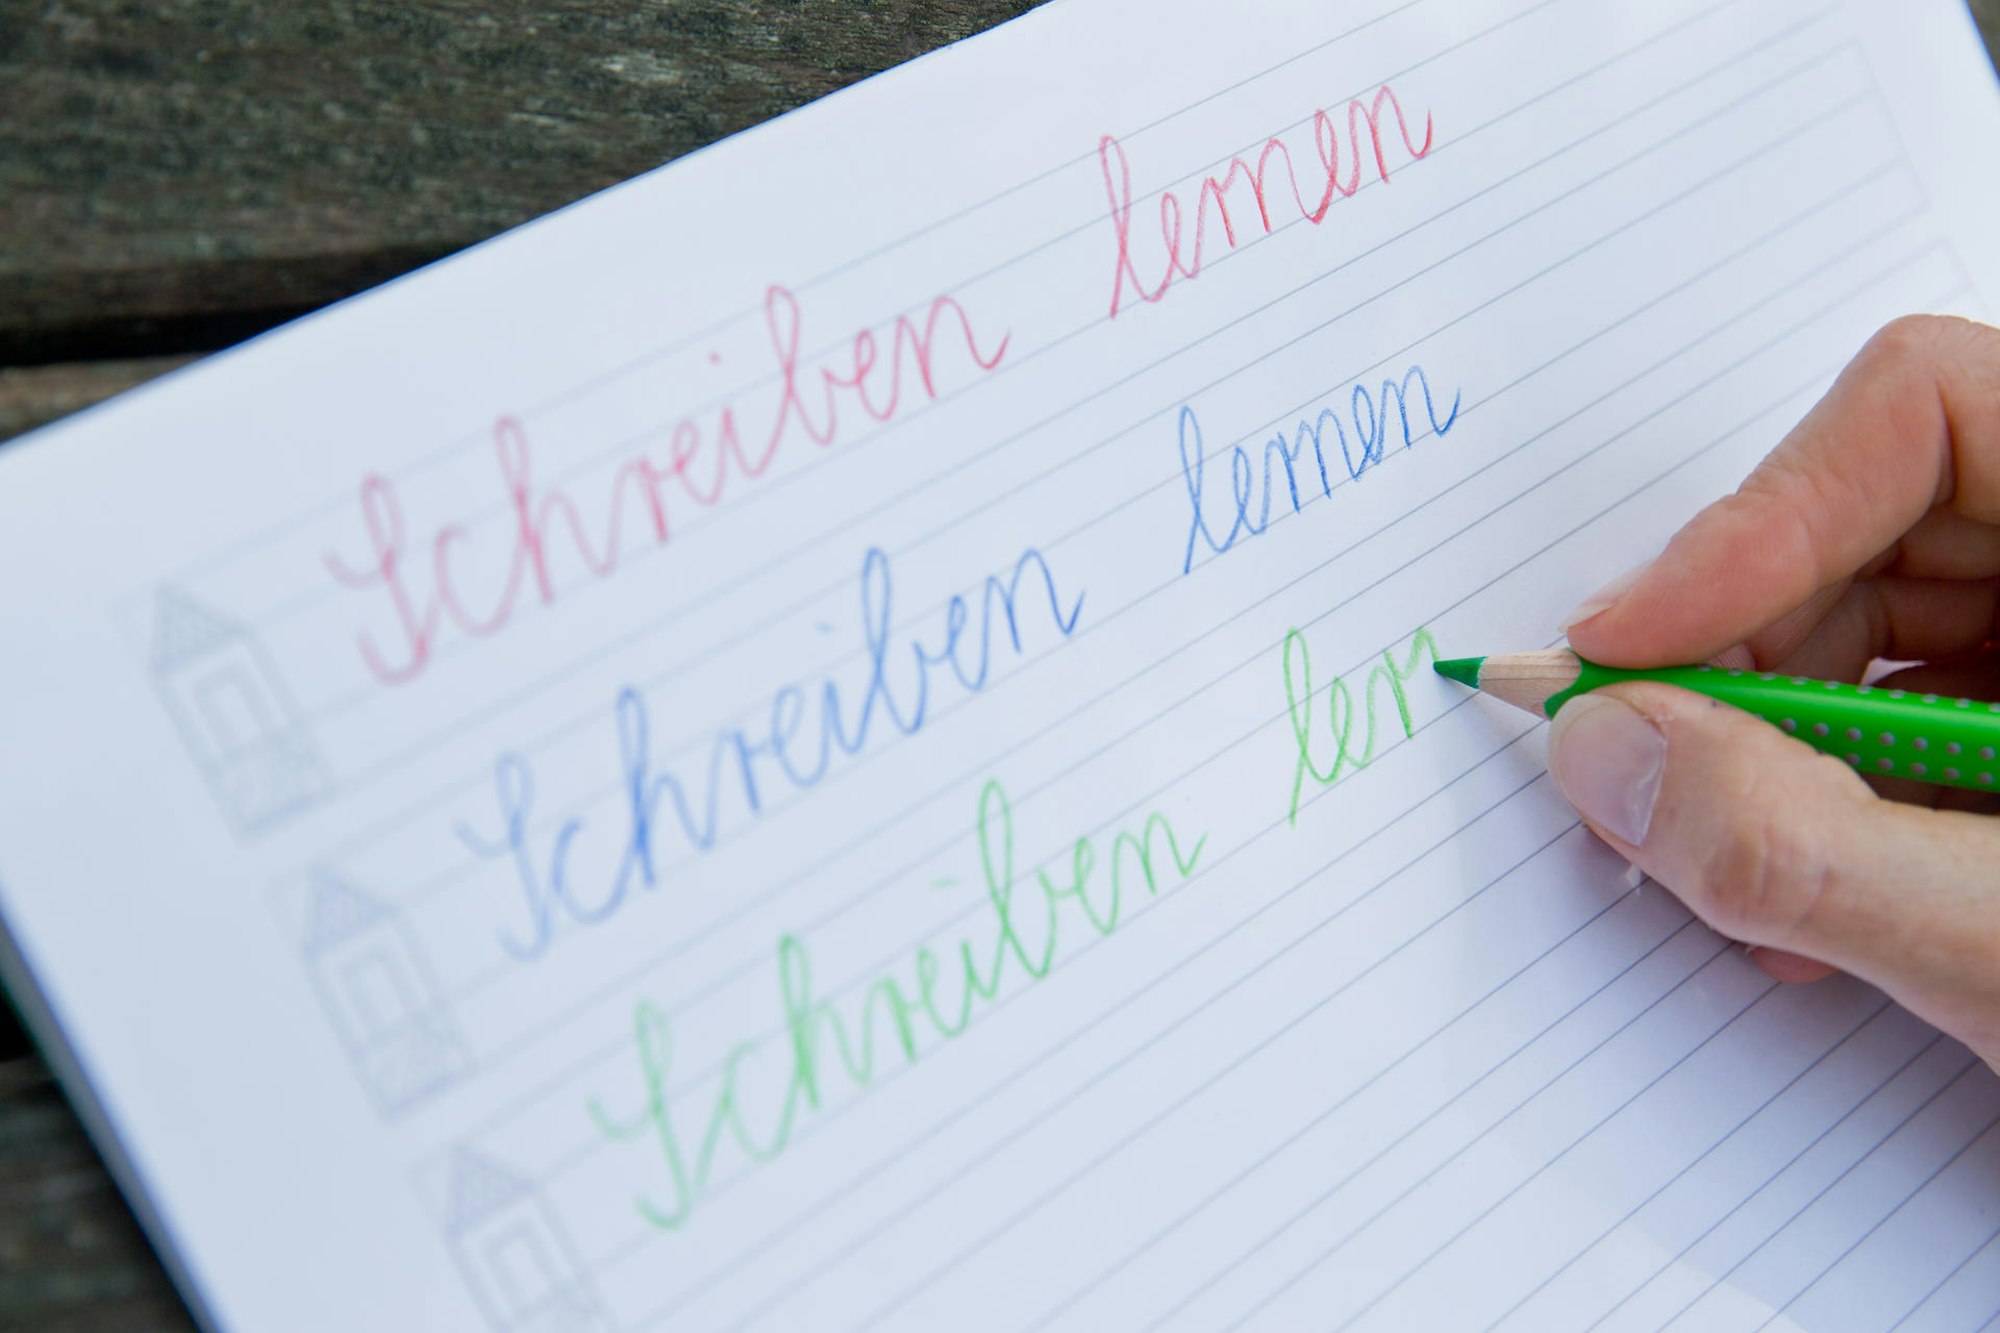 Schreiben lernen
Schreiben lernen
Schreiben lern